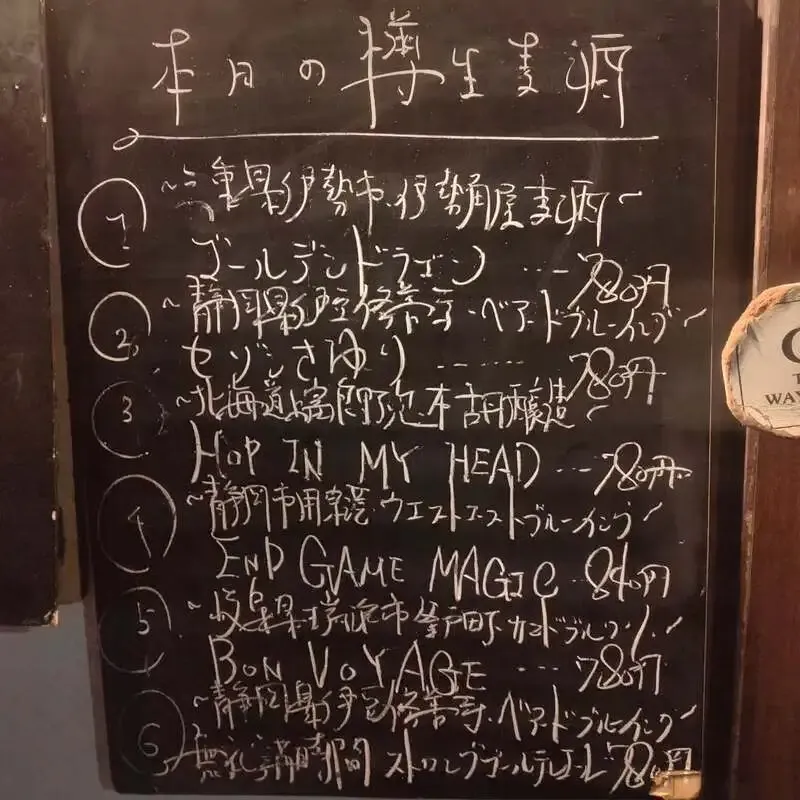 本日の樽生麦酒
1 ~三重県伊勢市.伊勢角屋麦酒~
ゴールデンドラゴン ... 780円
2 ~静岡県伊豆修善寺・ベアードブルーイング~
セゾンさゆり ...... 780円
3 ~北海道上富良野 忽布古丹醸造~
HOP IN MY HEAD ... 780円
4 ~静岡市用宗港 ウエストコーストブルーイング~
END GAME MAGIC 840円
5 ~岐阜県瑞浪市釜戸町 カマドブルワリー~
BON VOYAGE ... 780円
6 ~静岡県伊豆修善寺・ベアードブルーイング~
ストロングゴールデンエール 780円
WAY